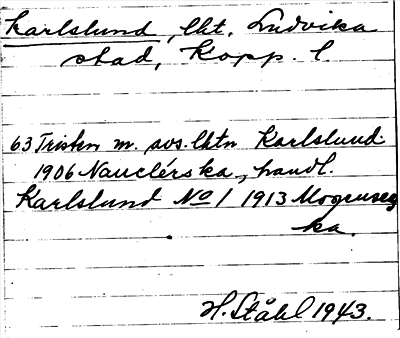 Karlslund, lht, Ludvika
stad, Kopp. l.
63 Tristen m. avs. lhtn Karlslund.
1906 Nauclérska, handl.
Karlslund No 1 1913 Mogruseg
ka.
H. Ståhl 1943.